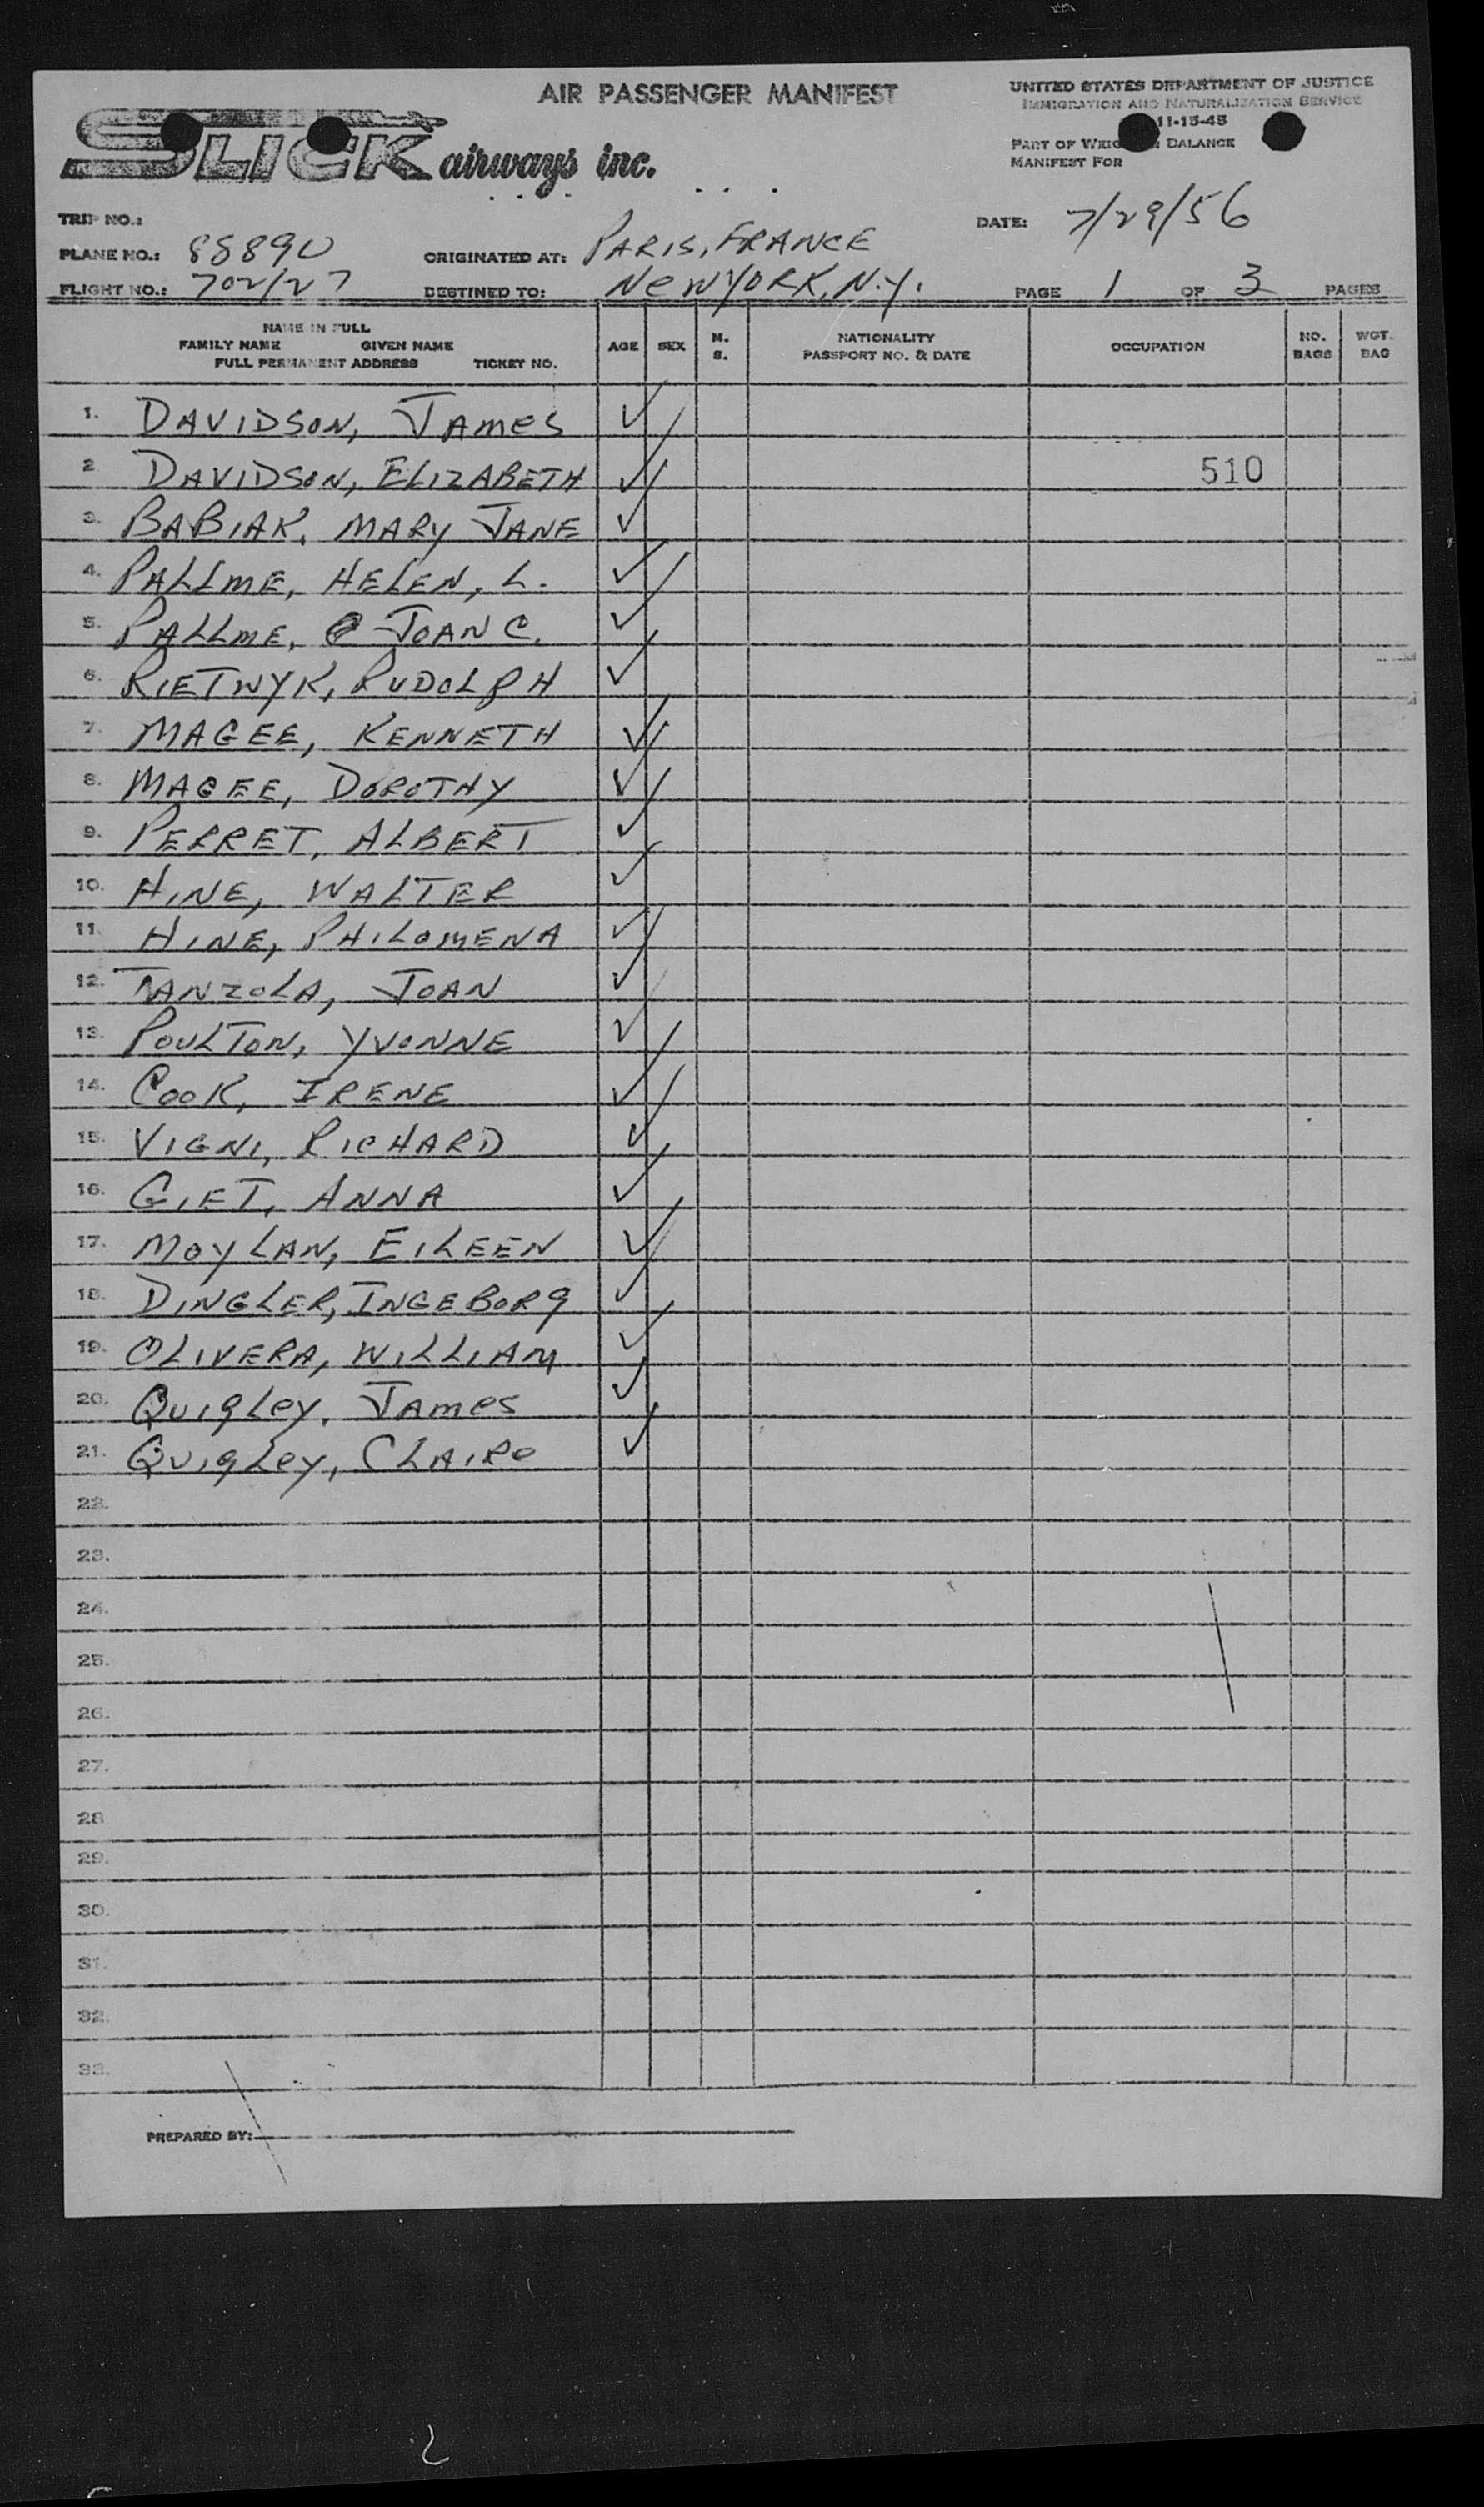 AIR PASSENGER MANIFEST
UNITED STATES DEPARTMENT OF JUSTICE
IMMIGRATION AND NATURALIZATION SERVICE
11-15-45
PART OF BALANCE
MANIFEST FOR
SLICK airways inc.
TRIP NO.:
DATE: 7/29/56
PLANE NO.: 88890
ORIGINATED AT: PARIS, FRANCE
FLIGHT NO.: 702/27
DESTINED TO: NEW YORK, N.Y.
PAGE 1 OF 3 PAGES
NAME IN FULL
FAMILY NAME GIVEN NAME
FULL PERMANENT ADDRESS TICKET NO.
AGE
SEX
M.
S.
NATIONALITY
PASSPORT NO. & DATE
OCCUPATION
NO.
BAGS
WGT.
BAG
1. DAVIDSON, JAMES ✓
2. DAVIDSON, ELIZABETH ✓ 510
3. BABIAK, MARY JANE ✓
4. PALLME, HELEN, L. ✓
5. PALLME, JOAN C. ✓
6. RIETWYK, RUDOLPH ✓
7. MAGEE, KENNETH ✓
8. MAGEE, DOROTHY ✓
9. PERRET, ALBERT ✓
10. HINE, WALTER ✓
11. HINE, PHILOMENA ✓
12. TANZOLA, JOAN ✓
13. POULTON, YVONNE ✓
14. COOK, IRENE ✓
15. VIGNI, RICHARD ✓
16. GIET, ANNA ✓
17. MOYLAN, EILEEN ✓
18. DINGLER, INGEBORG ✓
19. OLIVERA, WILLIAM ✓
20. QUIGLEY, JAMES ✓
21. QUIGLEY, CLAIRE ✓
22.
23.
24.
25.
26.
27.
28.
29.
30.
31.
32.
33.
PREPARED BY: